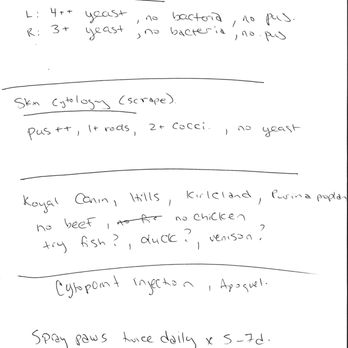 L: 4++ yeast, no bacteria, no pus.
R: 3+ yeast, no bacteria, no pus
Skin Cytology (scrape).
pus ++, 1+ rods, 2+ cocci., no yeast
Royal Canin, Hills, Kirkland, Purina proplan
no beef, no chicken
try fish?, duck?, venison?
Cytopoint injection, Apoquel.
Spray paws twice daily x 5-7d.